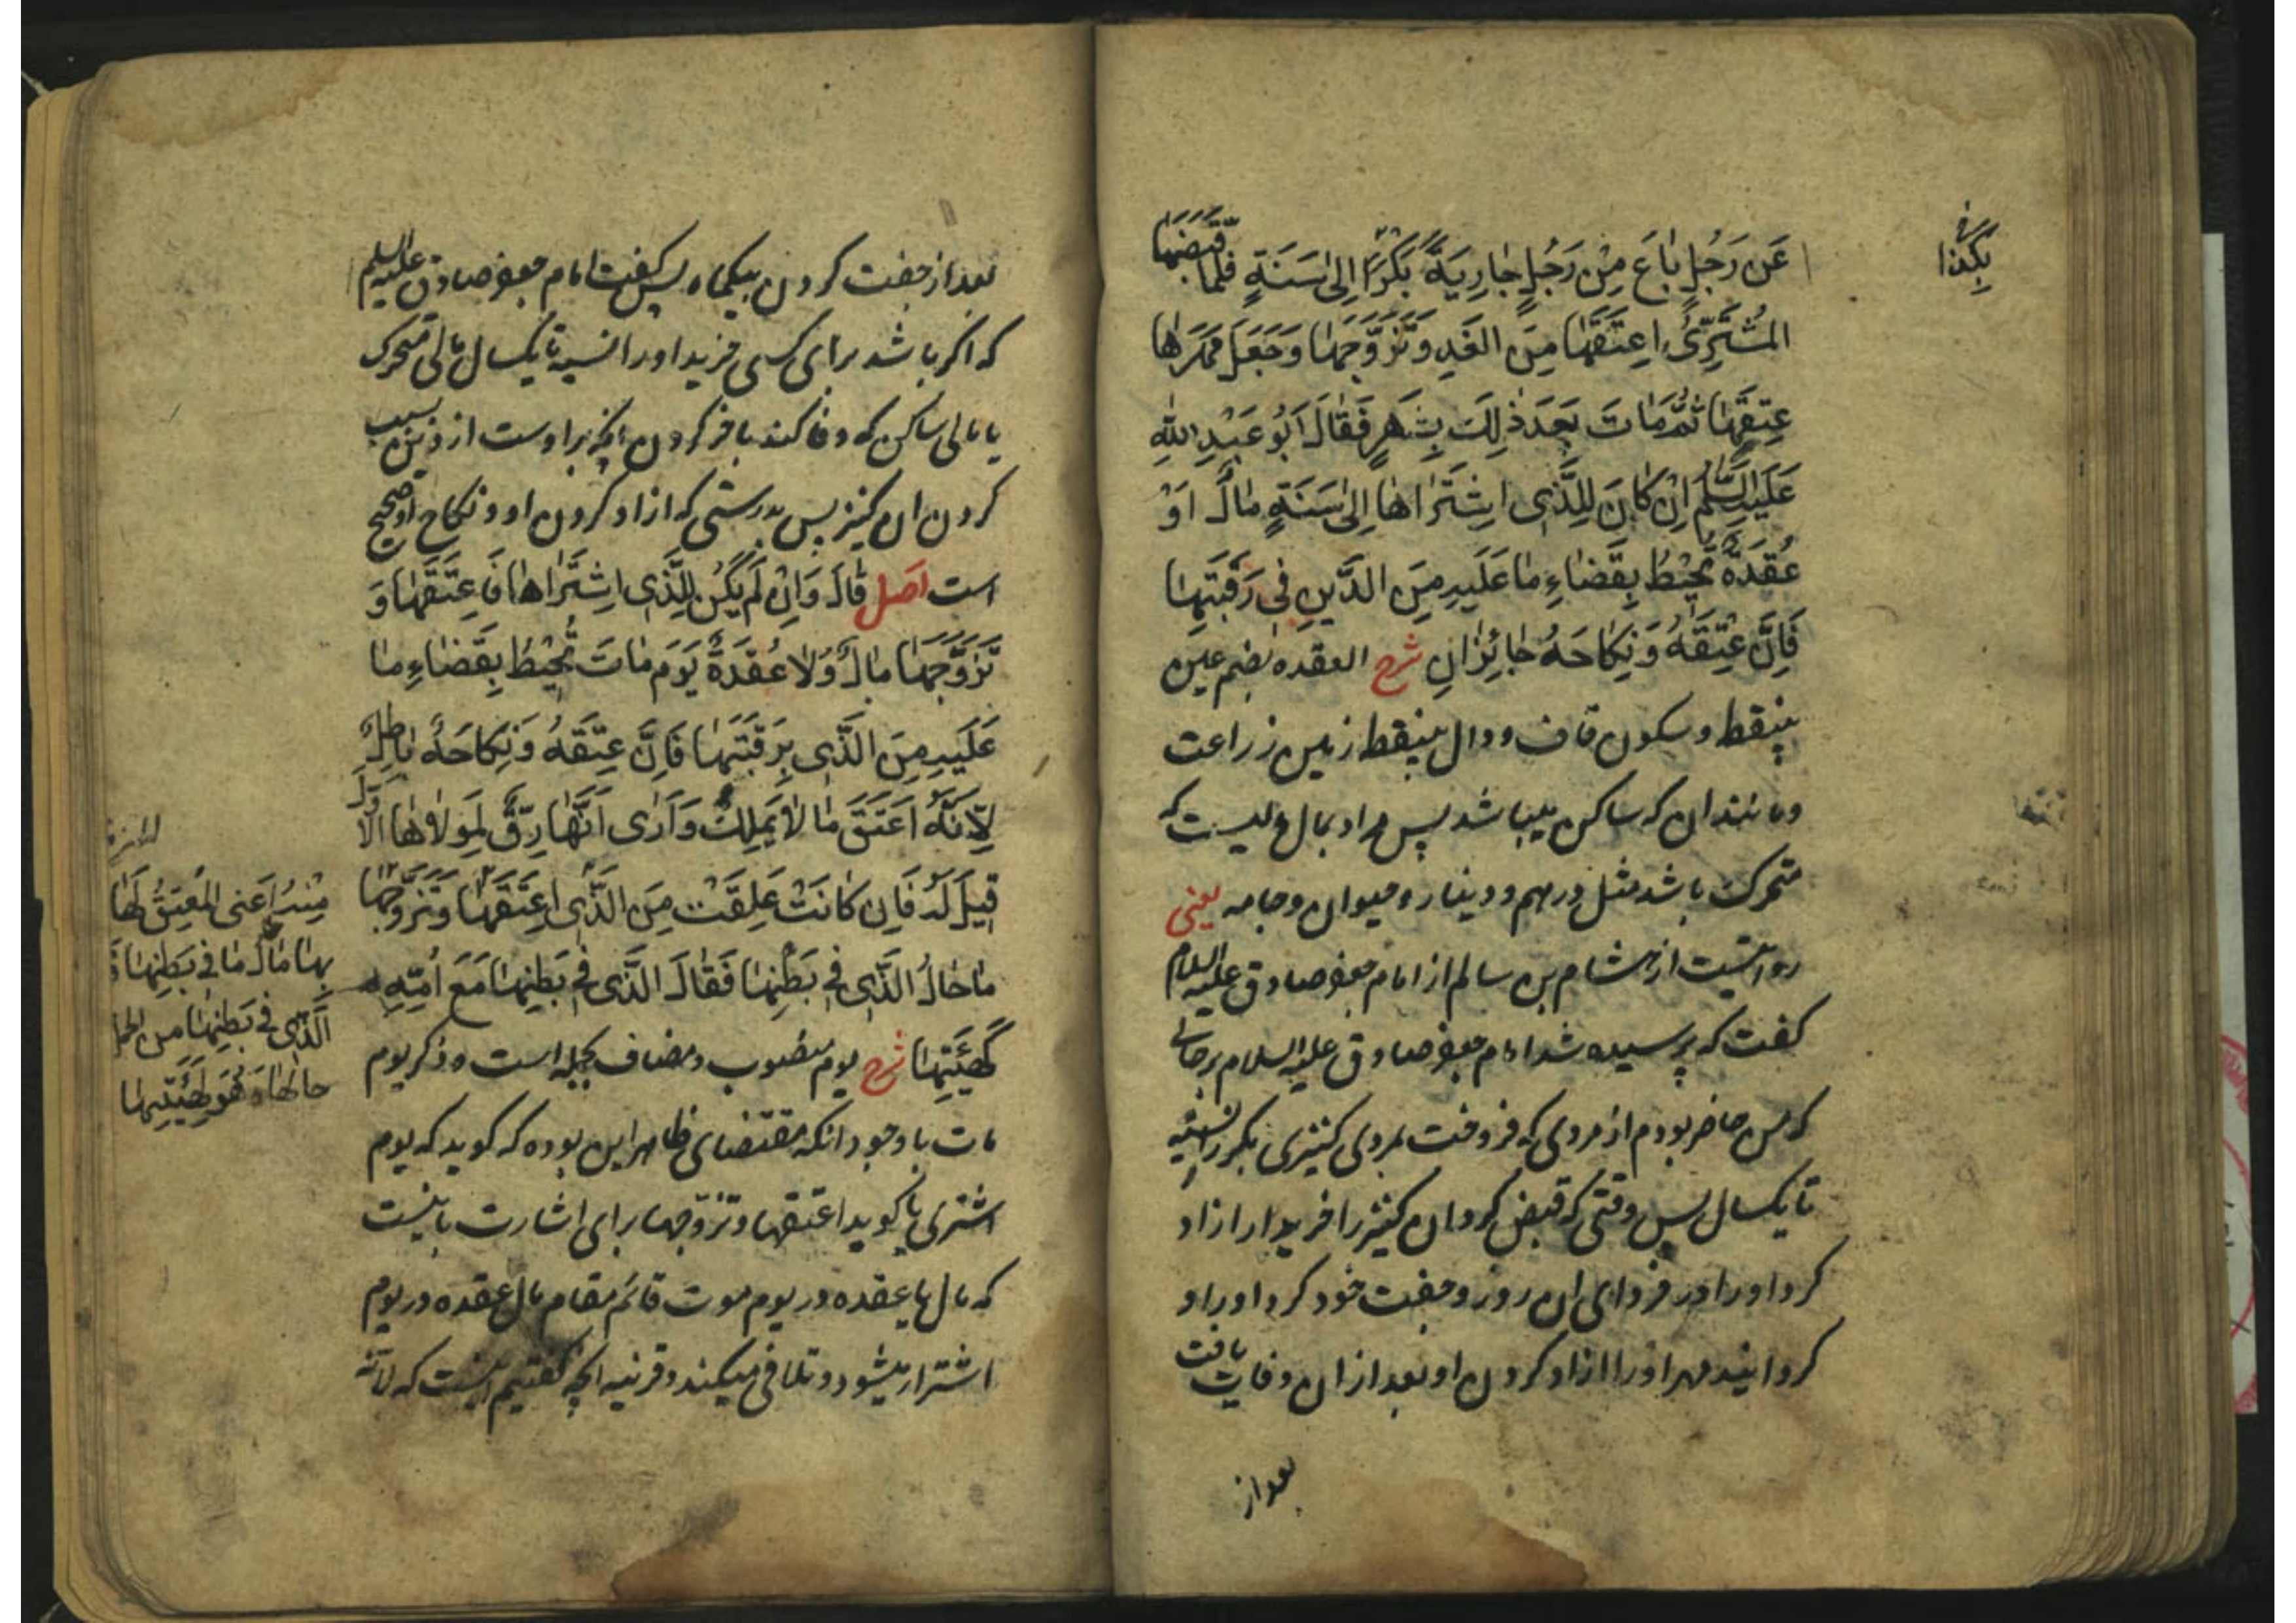 عَن رَجُلٍ بٰاعَ مِنْ رَجُلٍ جٰارِيَةً بَكْرًا اِلىٰ سَنَةٍ فلمّا قَبَضَهٰا
المُشْتَرِیُ اعتَقَهٰا مِنَ الغَدِ وَتَزَوَّجَهٰا وَجَعَلَ مَهْرَهٰا
عِتقَهٰا ثُمَّ مٰاتَ بَعدَ ذٰلِكَ بِشَهرٍ فَقٰالَ اَبُو عَبْدِ اللّٰهِ
عَلَيهِ السَّلٰم اِنْ كٰانَ لِلَّذِى اشتَرٰاهٰا اِلىٰ سَنَةٍ مٰالٌ اَوْ
عُقدَةٌ تُحيْطُ بِقَضٰاءِ مٰا عَلَيهِ مِنَ الدَّينِ فِى رَقَبَتِهٰا
فَاِنَّ عِتْقَهُ وَنِكٰاحَهُ جٰائِزٰانِ شرح العقده بضم عين
بینقط و سکون قاف و دال بینقط زمین زراعت
و مانند ان که ساکن میباشد پس مراد بمال چیزیست که
متحرک باشد مثل درهم و دینار و حیوان و جامه یعنی
روایتست از هشام بن سالم از امام جعفر صادق علیه السلام
کفت که پرسیده شد امام جعفر صادق علیه السلام بر حالی
که من حاضر بودم از مردی که فروخت بمردی کنیزی بکر را نسیه
تا یکسال پس وقتی که قبض کرد ان کنیز را خریدار ازاد
کرد او را در فردای ان روز و جفت خود کرد او را و
کردانید مهر او را ازاد کردن او بعد از ان وفات یافت
بعد از
بعد از جفت کردن بیکماه پس کفت امام جعفر صادق علیه السلم
که اکر باشد برای کسی خرید او را نسیه تا یکسال مالی متحرک
یا مالی ساکن که وفا کند بافر کردن انچه بر اوست از دین بسبب
کردن ان کنیز پس بدرستی که ازاد کردن او و نکاح او صحیح
است اصل قٰالَ وَاِنْ لَم يَكُن لِلَّذِى اشتَرٰاهٰا فَاعتَقَهٰا وَ
تَزَوَّجَهٰا مٰالٌ وَلٰا عُقدَةٌ يَومَ مٰاتَ تُحيْطُ بِقَضٰاءِ مٰا
عَلَيهِ مِنَ الَّذِى بِرَقَبَتِهٰا فَاِنَّ عِتْقَهُ وَنِكٰاحَهُ بٰاطِلٌ
لِاَنَّهُ اَعتَقَ مٰا لٰا يَمْلِكُ وَاَرٰى اَنَّهٰا رِقٌّ لِمَولٰاهٰا الاَوَّلِ
قيلَ لَهُ فَاِن كٰانَتْ عَلِقَتْ مِنَ الَّذِى اعتَقَهٰا وَتَزَوَّجَهٰا
مٰا حٰالُ الَّذِى فى بَطْنِهٰا فَقٰالَ الَّذِى فى بَطنِهٰا مَعَ اُمِّهِ
كَهَيْئَتِهٰا شرح یوم منصوب و مضاف بجمله است و ذکر یوم
مات با وجود انکه مقتضای ظاهر این بوده که کوید که یوم
اشتری یا کوید اعتقها و تزوجها برای اشارت باینست
که مال یا عقده در یوم موت قائم مقام مال و عقده در یوم
اشترا میشود و تلافی میکند و قرینه انچه کفتیم اینست که لانّه
مِنهُ اَعنى المُعتِقُ لَهٰا
بِهٰا مٰالُ مٰا فى بَطنِهٰا
الَّذى فى بَطنِهٰا من
حالهٰا فَهُوَ كَهَيْئَتِهٰا